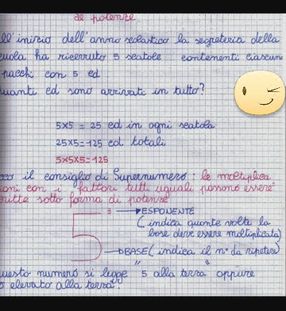 le potenze
all'inizio dell'anno scolastico la segreteria della
scuola ha ricevuto 5 scatole contenenti ciascuna
pacchi con 5 cd
quanti cd sono arrivati in tutto?
5x5 = 25 cd in ogni scatola
25x5=125 cd totali
5x5x5=125
il consiglio di Supernumero: le moltiplica
zioni con i fattori tutti uguali possono essere
scritte sotto forma di potenze
5³
ESPONENTE
(indica quante volte la
base deve essere moltiplicata)
BASE (indica il n° da ripetere)
questo numero si legge 5 alla terza oppure
elevato alla terza